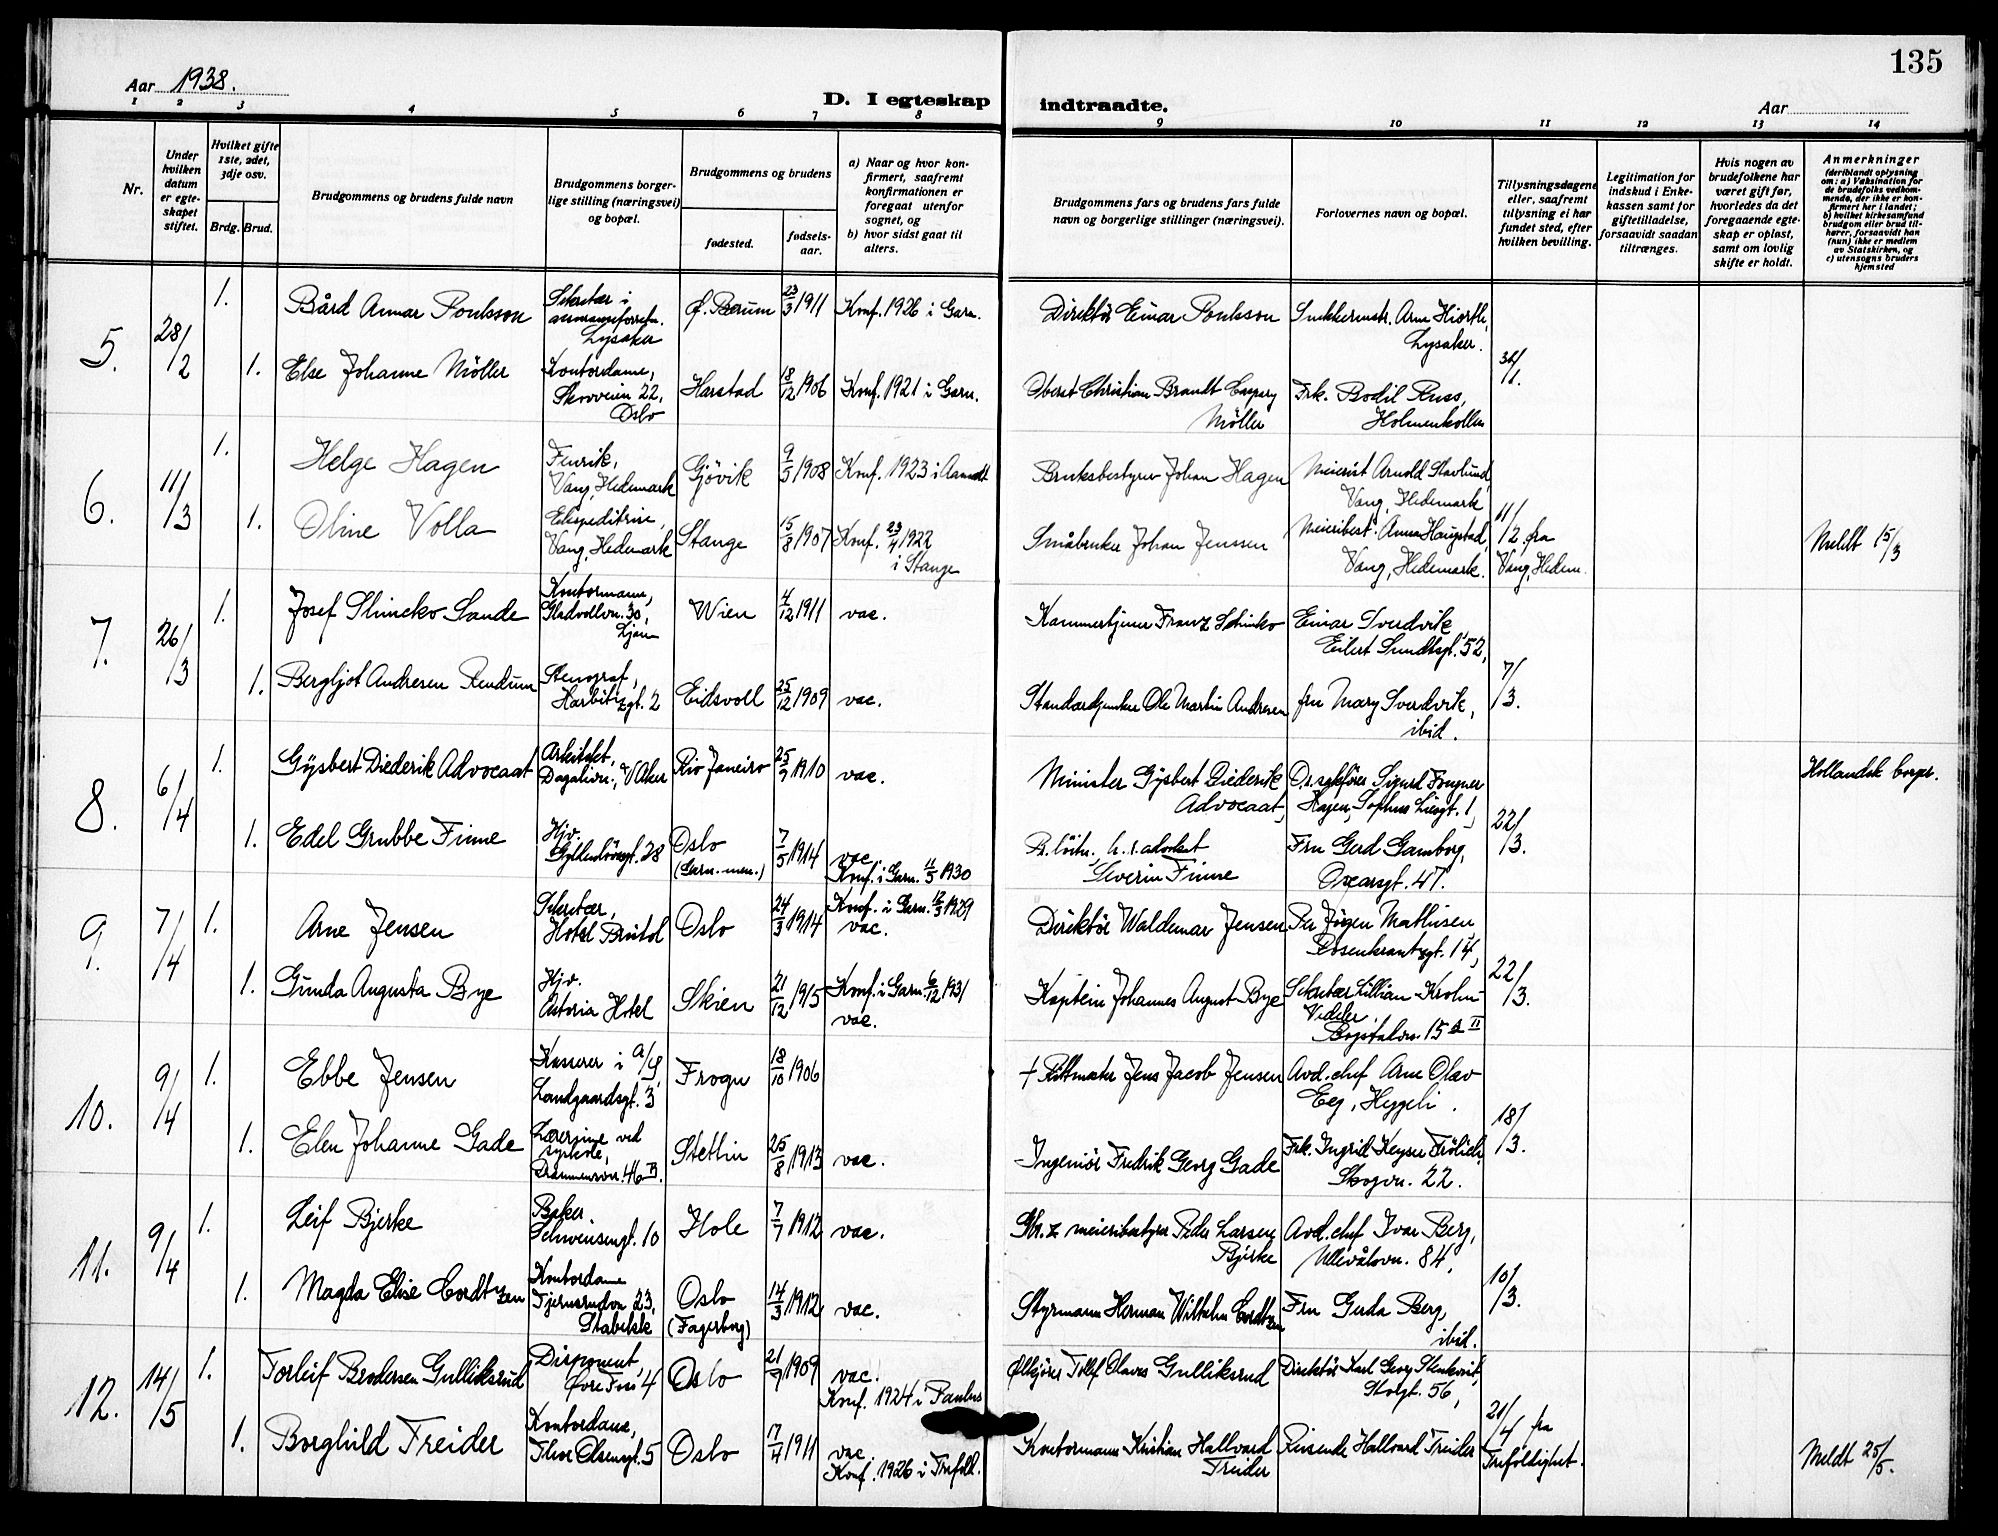 135
Aar 1938.
D. I egteskap indtraadte.
Aar
1 2 3 4 5 6 7 8 9 10 11 12 13 14
Nr.
Under hvilken datum er egteskapet stiftet.
Hvilket gifte 1ste, 2det, 3dje osv.
Brdg. Brud.
Brudgommens og brudens fulde navn
Brudgommens borgerlige stilling (næringsvei) og bopæl.
Brudgommens og brudens
fødested.
fødselsaar.
a) Naar og hvor konfirmert, saafremt konfirmationen er foregaat utenfor sognet, og
b) hvor sidst gaat til alters.
Brudgommens fars og brudens fars fulde navn og borgerlige stillinger (næringsvei).
Forlovernes navn og bopæl.
Tillysningsdagene eller, saafremt tillysning ei har fundet sted, efter hvilken bevilling.
Legitimation for indskud i Enkekassen samt for giftetilladelse, forsaavidt saadan tiltrænges.
Hvis nogen av brudefolkene har været gift før, hvorledes da det foregaaende egteskap er opløst, samt om lovlig skifte er holdt.
Anmerkninger
(deriblandt oplysning om: a) Vaksination for de brudefolks vedkommende, der ikke er konfirmert her i landet;
b) hvilket kirkesamfund brudgom eller brud tilhører, forsaavidt han (hun) ikke er medlem av Statskirken, og
c) utensogns bruders hjemsted
5. 28/2
1. Bård Annar Poulsson
Sekretær i
Lysaker
Ø. Bærum 23/3 1911 Konf. 1926 i Garn.
Direktør Einar Poulsson
Arne Hiorth,
Lysaker.
1. Else Johanne Möller
Kontordame,
Skovveien 22,
Oslo
Harstad 18/12 1906 Konf. 1921 i Garn.
Oberst Christian Brandt Caspary
Möller
Frk. Bodil Russ,
Holmenkollen
6. 11/3
1. Helge Hagen
Fenrik,
Vang, Hedemark
Gjövik 9/5 1908 Konf. 1923 i
Bruksbestyrer Johan Hagen
Meierist Arnold Stavlund,
Vang, Hedemark
1. Oline Volla
Ekspeditrise,
Vang, Hedemark
Stange 15/8 1907 Konf. 23/4 1922
i Stange
Småbruker Johan Jenssen
Meieribest. Anna Haugstad,
Vang, Hedemark.
11/2. fra
Vang, Hedem.
Meldt 15/3
7. 26/3
1. Josef Slimcko Sande
Kontormann,
Gladvollvn. 30,
Ljan
Wien 4/12 1911 vac.
Kammertjener Franz Schinko
Einar Sverdvik
Eilert Sundtsgt. 52,
1. Bergljot Andresen Rendum
Stenograf,
Harbitzgt. 2
Eidsvoll 25/12 1909 vac.
Standardjunker Ole Martin Andresen
fru Mary Sverdvik,
ibid.
7/3.
8. 6/4
1. Gijsbert Diederik Advocaat
Arkitekt,
Dagalivn., V Aker
Rio Janeiro 25/9 1910 vac.
Minister Gijsbert Diederik
Advocaat,
O.r.sakfører Sigurd Fougner
Hagen, Sophus Liesgt. 1,
Hollandsk borger.
1. Edel Grubbe Finne
Hjv.
Gyldenlövesgt. 28
Oslo
(Garn. men.)
7/5 1914 vac.
Konf. i Garn. 11/5 1930
Pr. löitn., h. r. advokat
Severin Finne
Fru Gerd Gamborg,
Oscarsgt. 47.
22/3.
9. 7/4
1. Arne Jensen
Sekretær,
Hotel Bristol
Oslo 24/3 1914 Konf. i Garn. 12/5 1929
vac.
Direktör Waldemar Jensen
Per Jörgen Mathiesen,
Rosenkrantzgt. 14,
1. Gunda Augusta Bye
Hjv.
Astoria Hotel
Skien 21/12 1915 Konf. i Garn. 6/12 1931
vac.
Kaptein Johannes August Bye
Sekretær Lillian Krohn-
Videler,
Bogstadvn. 15 a II
22/3.
10. 9/4
1. Ebbe Jensen
Kasserer i
3
Frogn 18/10 1906
† Rittmester Jens Jacob Jensen
Avd. chef Arne Olav
Eeg, Heggeli.
1. Elen Johanne Gade
Lærerinne ved
Drammensvn. 46 B.
Stettin 25/8 1913 vac.
Ingeniör Fredrik Georg Gade
Frk. Ingrid Keyser Frölich,
Skogvn. 22.
18/3.
11. 9/4
1. Leif Bjerke
Baker.
Schwensengt. 10
Hole 7/7 1912 vac.
meieribestyrer Peder Larsen
Bjerke
Avd. chef Ivar Berg,
Ullevålsvn. 84,
1. Magda Elise Cordtzen
Kontordame
Fjernsrudvn 23,
Stabekk
Oslo
(Fagerborg)
14/3 1912 vac.
Styrmann Herman Wilhelm Cordtzen
Fru Gerda Berg,
ibid.
10/3.
12. 14/5
1. Torleif Brodersen Gulliksrud
Disponent,
Øvre Foss 4
Oslo 21/9 1909 vac.
Konf. 1924 i Paulus
Ølkjörer Tollef Olaves Gulliksrud
Direktör Karl Georg Stenkvist,
Storgt. 56,
1. Borghild Treider
Kontordame,
Thor Olsensgt. 5
Oslo 7/4 1911 vac.
Konf. 1926 i Trefold.
Kontormann Kristian Hallvard
Treider
Reisende Hallvard Treider
21/4 fra
Trefoldighet.
Meldt 25/5.